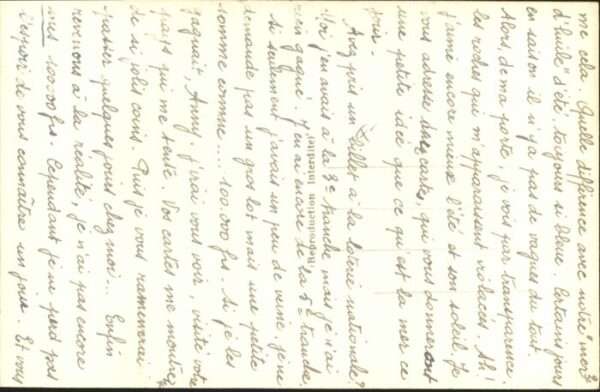 me cela. Quelle différence avec notre "mer
d'huile" d'été, toujours si bleue. Certains jours
en saison il n'y a pas de vagues du tout.
Alors, de ma porte, je vois par transparence
les roches qui m'apparaissent violacées. Ah!
j'aime encore mieux l'été et son soleil. Je
vous adresse cartes, qui vous donneront
une petite idée que ce qu'est la mer ce
jour.
Avez pris un billet à la loterie nationale?
Moi j'en avais à la 3e tranche mais je n'ai
rien gagné. J'en ai encore de la 5e tranche,
Reproduction Interdite
si seulement j'avais un peu de veine, je ne
demande pas un gros lot mais une petite
somme comme.... 100.000 frs. Si je les
gagnait, Anny, j'irai vous voir, visiter votre
pays qui me tente. Vos cartes me montrent
de si jolis coins. Puis je vous ramènerai
passer quelques jours chez moi... Enfin
revenons à la réalité, je n'ai pas encore
mes 100.000 frs. Cependant je ne perd pas
l'espoir de vous connaître un jour. Et vous